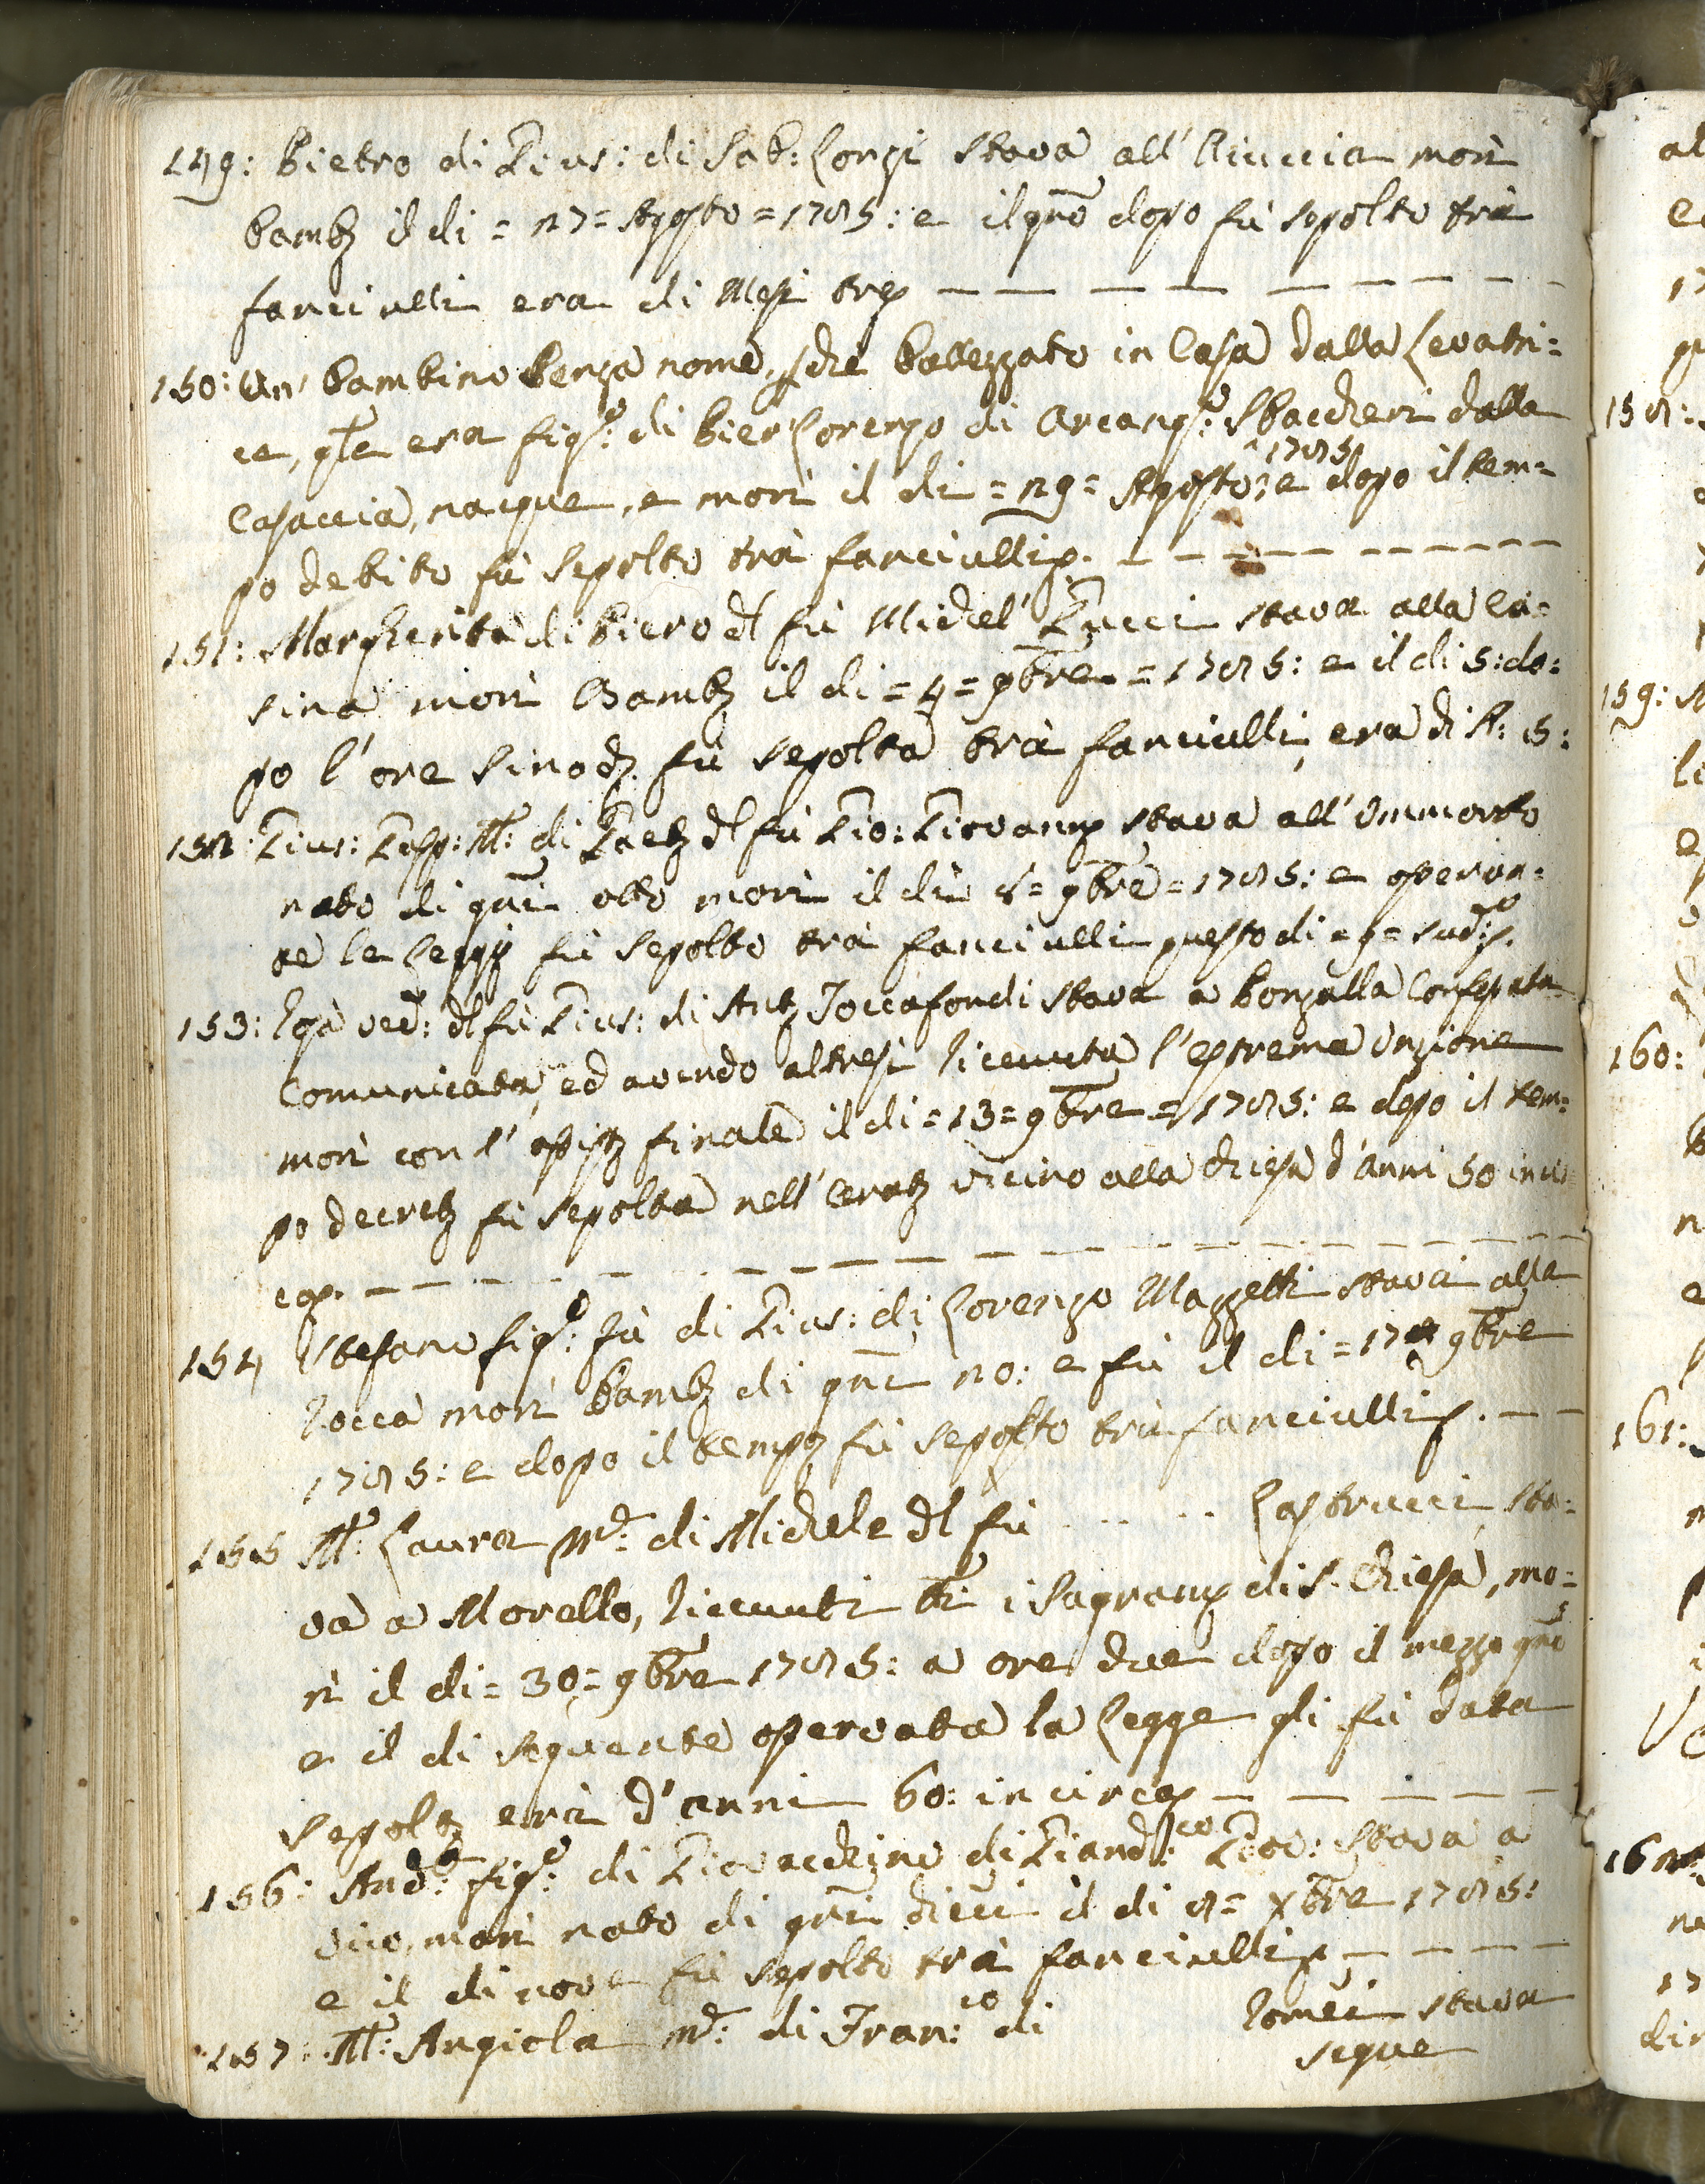 149: Pietro di Gius: di Sab: Conzi stava all'Aiuccia morì
bamb il di = 27 = Agosto = 1785: e il gno dopo fù sepolto trà
fanciulli era di Mesi tre
150: Un' bambino senza nome, battezzato in Casa dalla Levatri=
ce, qle era figo: di Pier Lorenzo di Arcango: Sbaccheri dalla
Casaccia, nacque, e morì il di = 29 = Agosto: 1785 e dopo il tem=
po debito fù sepolto trà fanciulli.
151: Margherita di Piero dl fù Michel' Zucci stava alla Ca=
sina morì Bamb il di = 4 = 9bre = 1785: e il di 5: do=
po l'ore fù sepolta trà fanciulli, era di A: 5:
152: Gius: Gasp: M: di Gaet dl fù Gio: Giovann stava all'Ommorto
nato di gni otto morì il di 8 = 9bre = 1785: e osservan=
te le Leggi fù sepolto trà fanciulli questo di = 9 = sudo.
153: ved: dl fù Gius: di Ant Toccafondi stava a Confessata
Comunicata, ed avendo altresì ricevuta l'estrema Unzione
morì con l'assist finale il di = 13 = 9bre = 1785: e dopo il tem=
po decret fù sepolta nell' vicino alla chiesa d'anni 50 in cir
ca.
154 Stefano figo: fù di Gius: di Lorenzo Mazzetti stava alla
Rocca morì bamb di gni 20: e fù il di = 17 9bre
1785: e dopo il temp fù sepolto trà fanciulli.
155 M: Laura Me: di Michele dl fù . . . . Castrucci sta=
va a Morello, ricevuti tti i Sagram di S. Chiesa, mo=
rì il di = 30 = 9bre 1785: a ore due dopo il mezzo gno
e il di seguente osservata la Legge gli fù data
sepolt era d'anni 60: in circa
156: Anda: figo: di Giovacchino di Gianda: Giov: stava a
Vico, morì nato di gni dieci il di 8 = Xbre 1785:
e il di nove fù sepolto trà fanciulli
157: M: Angiola Me: di Fran:co di Romei stava
segue
150:
159:
160:
161:
162: